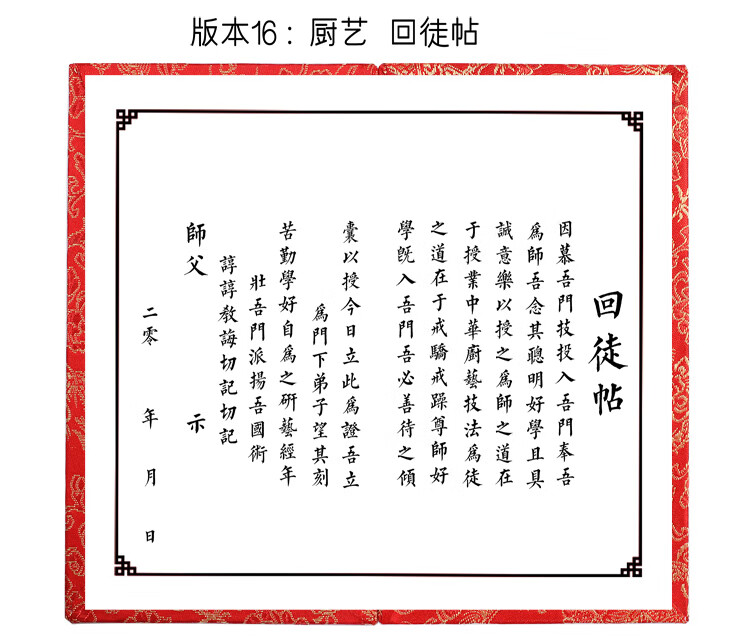 版本16：厨艺 回徒帖
回徒帖
因慕吾門技投入吾門奉吾
爲師吾念其聰明好學且具
誠意樂以授之爲師之道在
于授業中華廚藝技法爲徒
之道在于戒驕戒躁尊師好
學既入吾門吾必善待之傾
囊以授今日立此爲證吾立
爲門下弟子望其刻
苦勤學好自爲之研藝經年
壯吾門派揚吾國術
諄諄教誨切記切記
師父 示
二零 年 月 日